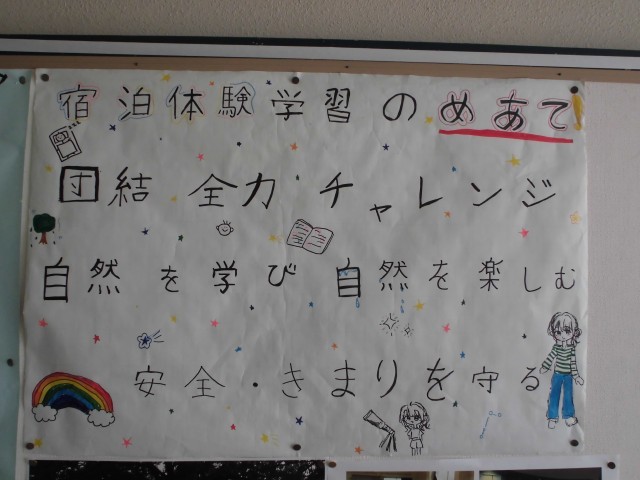 宿泊体験学習のめあて
団結 全力 チャレンジ
自然を学び 自然を楽しむ
安全・きまりを守る